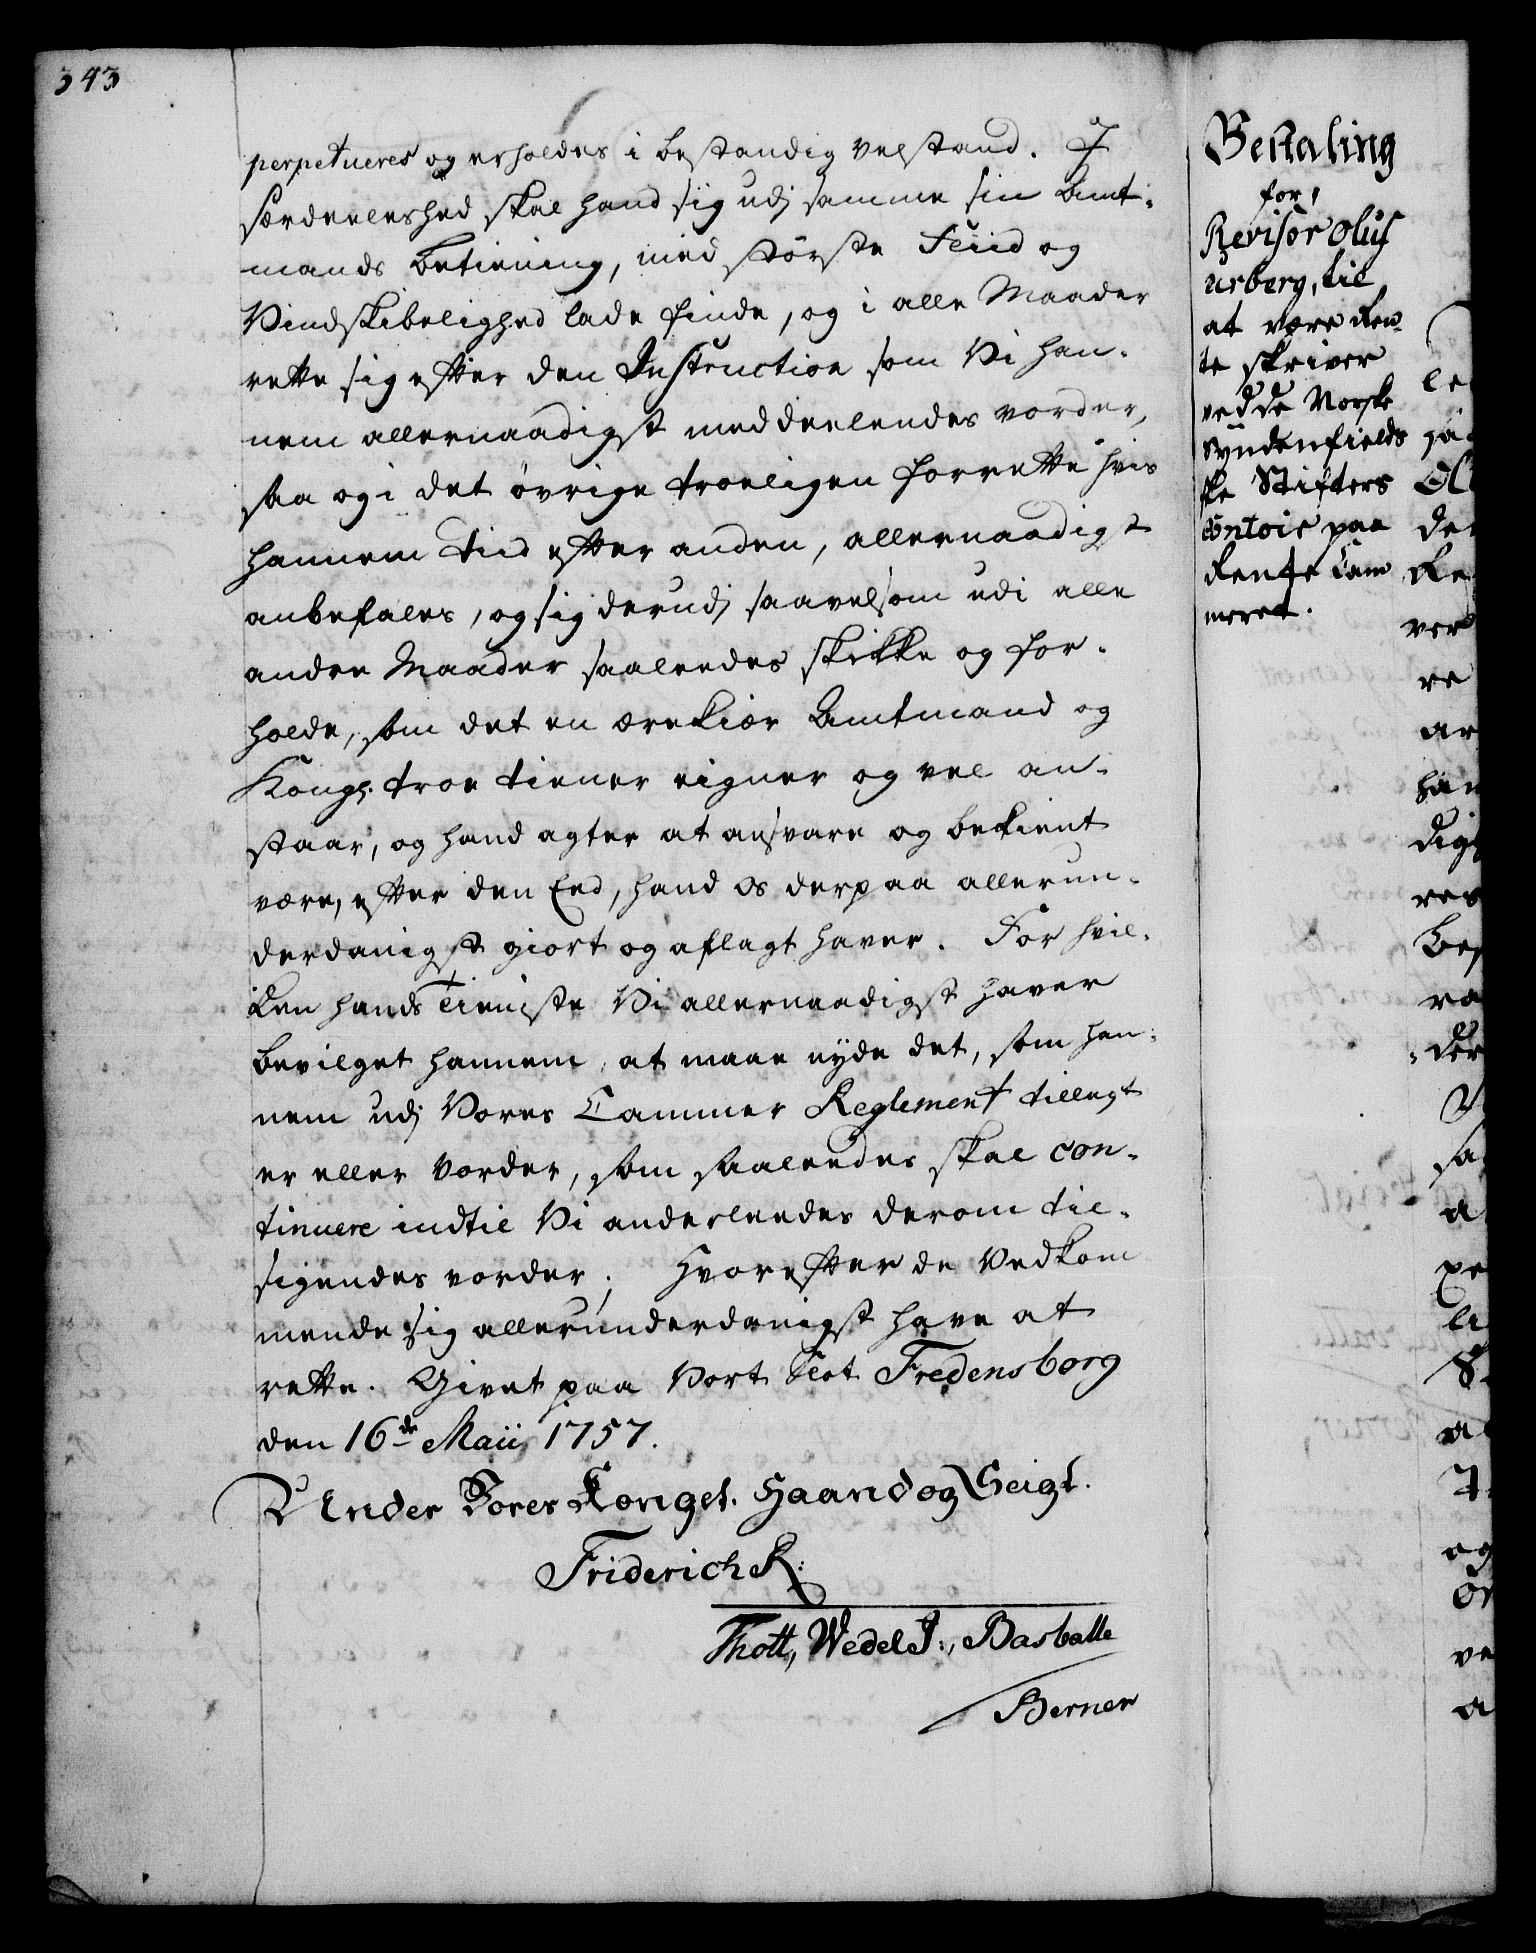 343
perpetueres og erholdes i bestandig velstand. I
særdeeleshed skal hand sig udj samme sin Amt-
mands betiening, med største Fliid og
Vindskibelighed lade finde, og i alle Maader
rette sig efter den Instruction som Vi han-
nem allernaadigst meddeelendes vorder,
saa og i det øvrige troeligen forrette hvis
hannem tiid efter anden, allernaadigst
anbefales, og sig derudj saavelsom udi alle
andre Maader saaleedes skikke og for-
holde, som det en ærekiær Amtmand og
Kongl. troe tiener eigner og vel an-
staar, og hand agter at ansvare og bekient
være, efter den Eed, hand os derpaa allerun-
derdanigst giort og aflagt haver. For hvil-
ken hands Tieniste Vi allernaadigst haver
bevilget hannem, at maae nyde det, som han-
nem udj Vores Cammer Reglement tillagt
er eller vorder, som saaleedes skal con-
tinuere indtil Vi anderleedes derom til-
sigendes vorder; Hvorefter de Vedkom
mende sig allerunderdanigst have at
rette. Givet paa Vort Slot Fredensborg
den 16de Maii 1757.
Under Vores Kongel. Haand og Seigl.
Friderich R.
Thott, Wedel J:, Basballe
Berner
Bestaling
for,
Revisor Oluf
urberg, til
at være Ren-
te skriver
ved de Norske
Syndenfields
ke Stifters
Contoir paa
Rente Cam
meret.